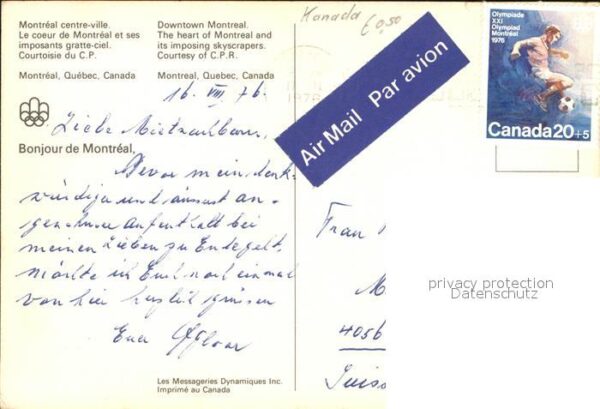 Montréal centre-ville.
Le coeur de Montréal et ses
imposants gratte-ciel.
Courtoisie du C.P.
Montréal, Québec, Canada
Downtown Montreal.
The heart of Montreal and
its imposing skyscrapers.
Courtesy of C.P.R.
Montreal, Quebec, Canada
Kanada
€0,50
Air Mail Par avion
Olympiade
XXI
Olympiad
Montréal
1976
Canada 20+5
16. VIII 76.
Liebe
Bonjour de Montréal,
Bevor mein denk-
würdiger und äusserst an-
genehmer Aufenthalt bei
meinen Lieben zu Ende geht,
möchte ich Euch noch einmal
von hier herzlich grüssen
Euer
Frau
M
4056
Suiss
privacy protection
Datenschutz
Les Messageries Dynamiques Inc.
Imprimé au Canada